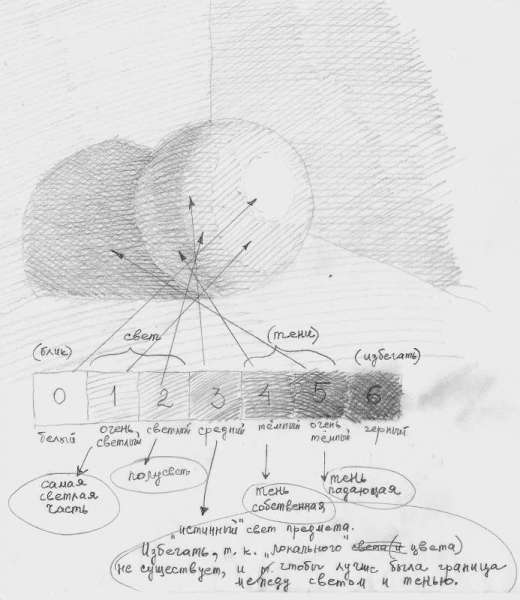 свет
(тени)
(блик)
(избегать)
0 1 2 3 4 5 6
белый
очень светлый
светлый
средний
тёмный
очень тёмный
черный
самая
светлая
часть
полусвет
тень
собственная
тень
падающая
"истинный" свет предмета.
Избегать, т. к. "локального" света (и цвета)
не существует, и п. чтобы лучше была граница
между светом и тенью.